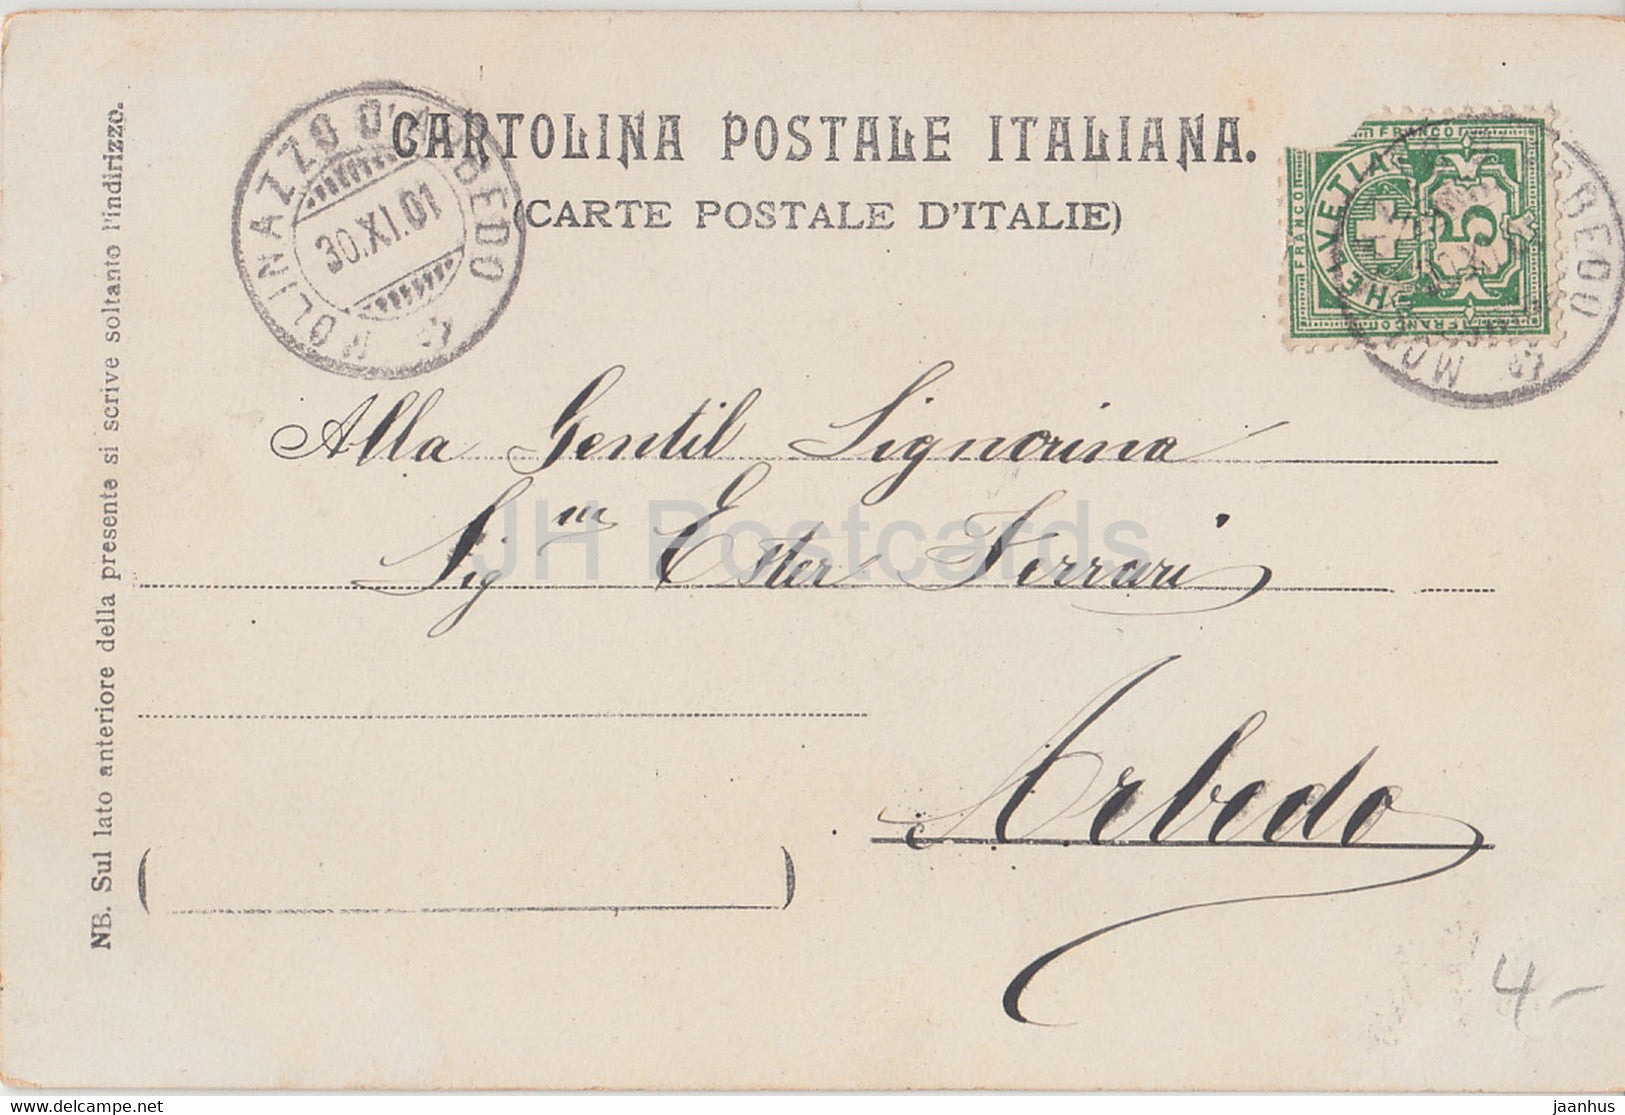 CARTOLINA POSTALE ITALIANA.
(CARTE POSTALE D'ITALIE)
MOLINAZZO D'ARBEDO
30.XI.01
FRANCO
FRANCO
HELVETIA
5
FRANCO
BEDO
MO
Alla Gentil Signorina
Sig na Ester Ferrari
Arbedo
NB. Sul lato anteriore della presente si scrive soltanto l'indirizzo.
(
)
4-
JH Postcards
delcampe.net
jaanhus